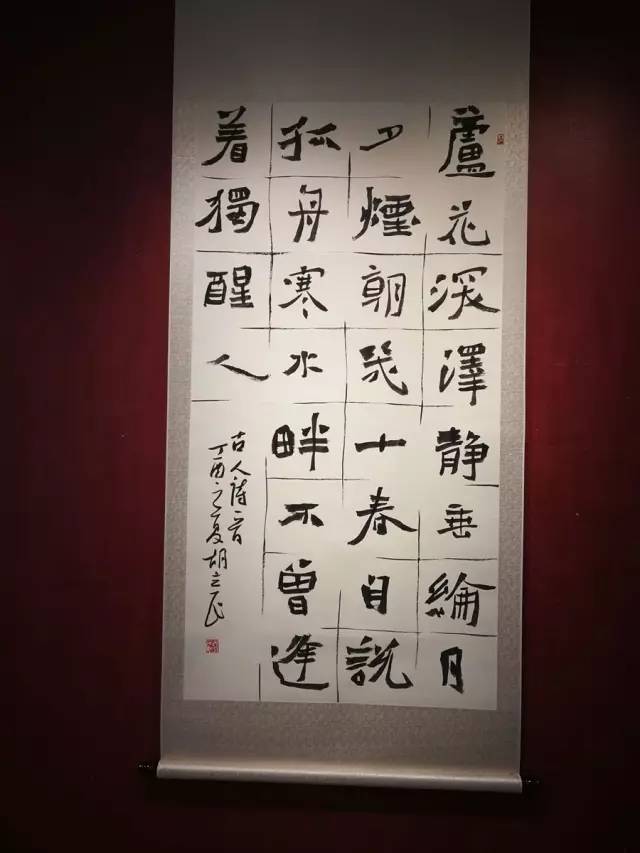 蘆花深澤靜垂綸月
夕煙朝幾十春自說
孤舟寒水畔不曾逢
着獨醒人
古人詩一首
丁酉之夏胡立民